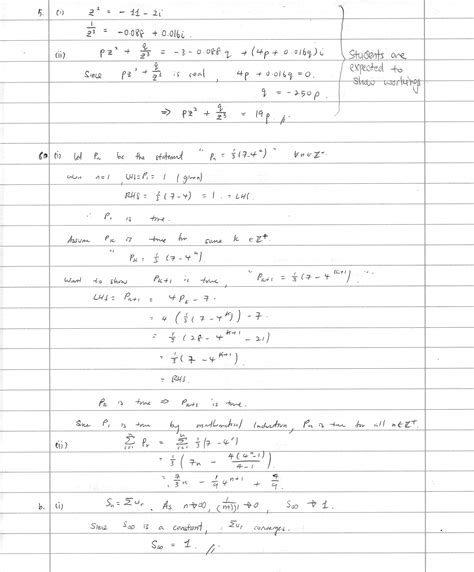 5. (i) z² = -11 - 2i
1/z³ = -0.088 + 0.016i
(ii) pz² + q/z³ = -3 - 0.088q + (4p + 0.016q)i
Since pz² + q/z³ is real, 4p + 0.016q = 0.
q = -250p
⇒ pz² + q/z³ = 19p //
Students are
expected to
show workings
(i) Let Pn be the statement "Pn = 1/3(7-4ⁿ)" ∀n∈Z⁺
when n=1, LHS = P₁ = 1 (given)
RHS = 1/3(7-4) = 1 = LHS
∴ P₁ is true.
Assume Pk is true for some k ∈ Z⁺
"Pk = 1/3(7-4ᵏ)"
Want to show Pk+1 is true, "Pk+1 = 1/3(7-4ᵏ⁺¹)"
LHS = Pk+1 = 4Pk - 7
= 4(1/3(7-4ᵏ)) - 7
= 1/3(28 - 4ᵏ⁺¹ - 21)
= 1/3(7 - 4ᵏ⁺¹)
= RHS
Pk is true ⇒ Pk+1 is true.
Since P₁ is true by mathematical induction, Pn is true for all n∈Z⁺
(ii) Σ Pr = Σ 1/3(7-4ʳ)
= 1/3(7n - 4(4ⁿ-1)/4-1)
= 7/3n - 1/9 4ⁿ⁺¹ + 4/9
6. (i) Sn = Σur. As n→∞, 1/(n+1)! → 0, S∞ → 1.
Since S∞ is a constant, Σur converges.
S∞ = 1. //